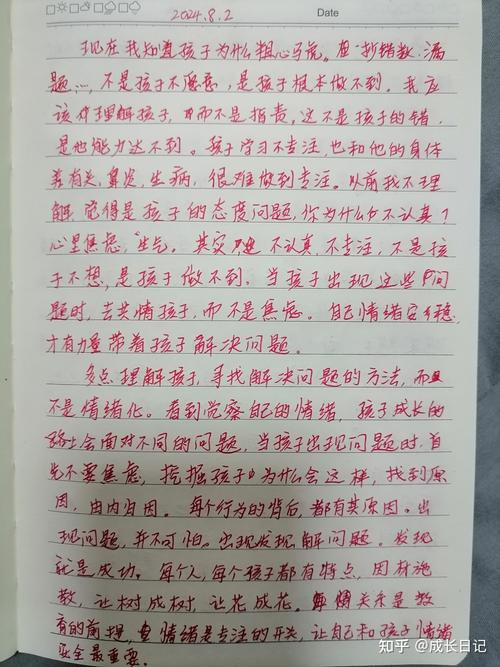 2024.8.2 Date
现在我知道孩子为什么粗心马虎。在抄错数、漏
题…,不是孩子不愿意,是孩子根本做不到。我应
该对理解孩子,而不是指责。这不是孩子的错,
是他能力达不到。孩子学习不专注,也和他的身体
素有关,鼻炎,生病,很难做到专注。以前我不理
解,觉得是孩子的态度问题,你为什么不认真?
心里焦虑,生气。其实不认真,不专注,不是孩
子不想,是孩子做不到。当孩子出现这些问
题时,去共情孩子,而不是焦虑。自己情绪安稳,
才有力量带着孩子解决问题。
多点理解孩子,寻找解决问题的方法,而
不是情绪化。看到觉察自己的情绪,孩子成长的
路上会面对不同的问题,当孩子出现问题时,首
先不要焦虑,挖掘孩子为什么会这样,找到原
因,由内归因。每个行为的背后,都有其原因。出
现问题,并不可怕。出现发现解问题。发现
就是成功。每个人,每个孩子都有特点,因材施
教,让树成树,让花成花。关系是教
育的前提,情绪是专注的开关,让自己和孩子情绪
安全最重要。
知乎 @成长日记